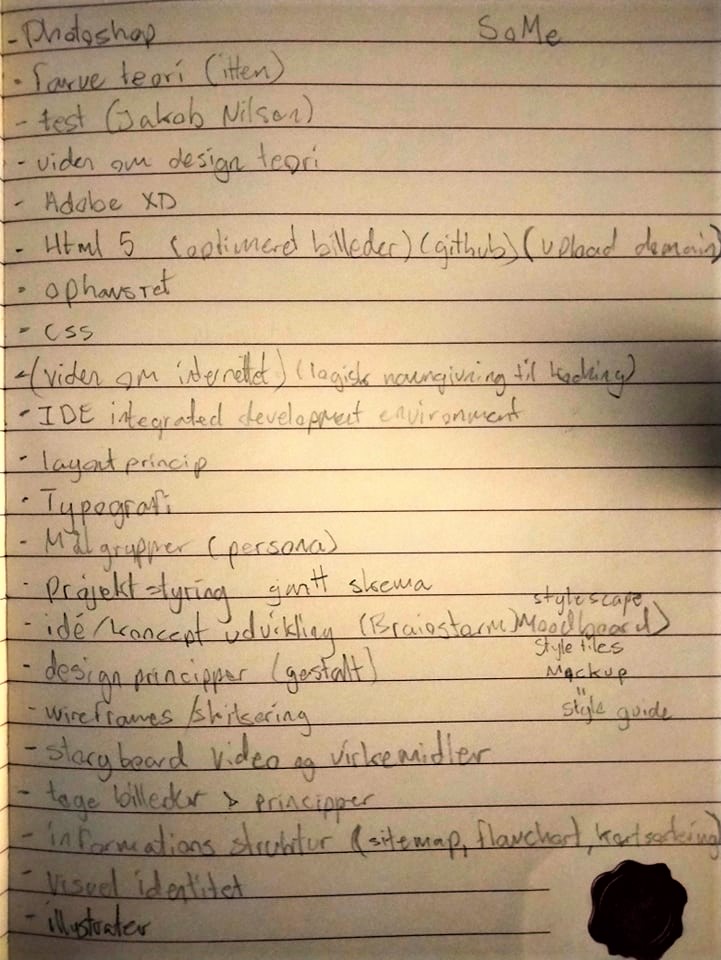 - Photoshop SoMe
- Farve teori (itten)
- test (Jakob Nilson)
- viden om design teori
- Adobe XD
- Html 5 (optimeret billeder) (github) (upload domain)
- ophavsret
- CSS
- (viden om internettet) (logisk navngivning til kodning)
- IDE integrated development environment
- layout princip
- Typografi
- Målgrupper (persona)
- projekt styring gantt skema
stylescape
- idé/koncept udvikling (Brainstorm) Moodboard)
Style tiles
- design principper (gestalt)
Mockup
"
- wireframes /skitsering style guide
- storyboard video og virkemidler
- tage billeder > principper
- informations struktur (sitemap, flowchart, kortsortering)
- Visuel identitet
- illustrator